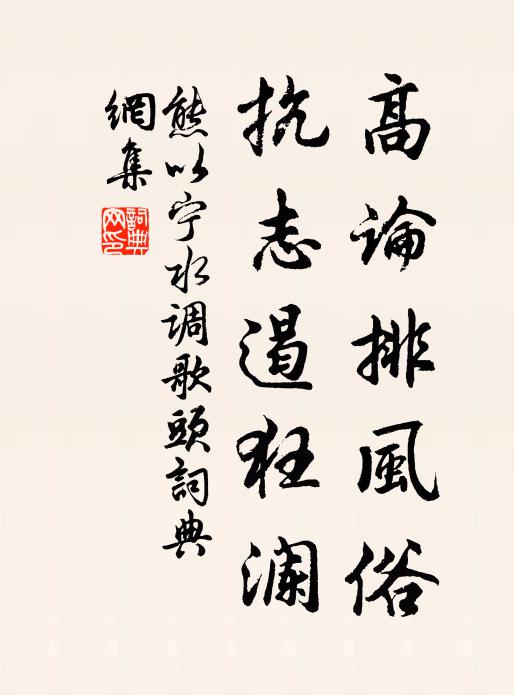 高論排風俗
抗志遏狂澜
熊以宁水调歌頭詞典
網集
詞典
网印